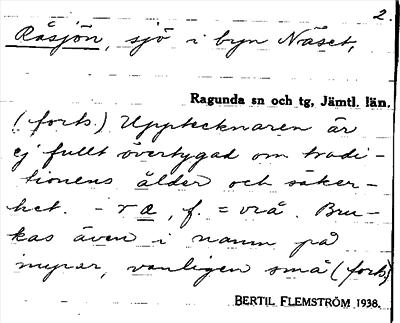 2.
Råsjön, sjö i byn Näset,
Ragunda sn och tg, Jämtl. län.
(forts.) Upptecknaren är
ej fullt övertygad om tradi-
tionens ålder och säker-
het. - ræ, f. = vrå. Bru-
kas även i namn på
myrar, vanligen små (forts)
BERTIL FLEMSTRÖM 1938.